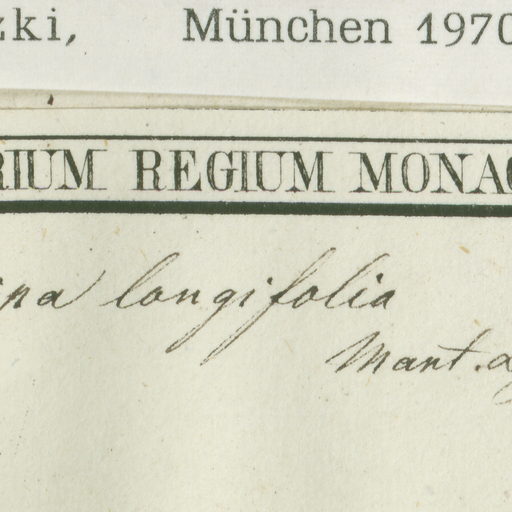 zki, München 1970
RIUM REGIUM MONAC
longifolia
Mant.